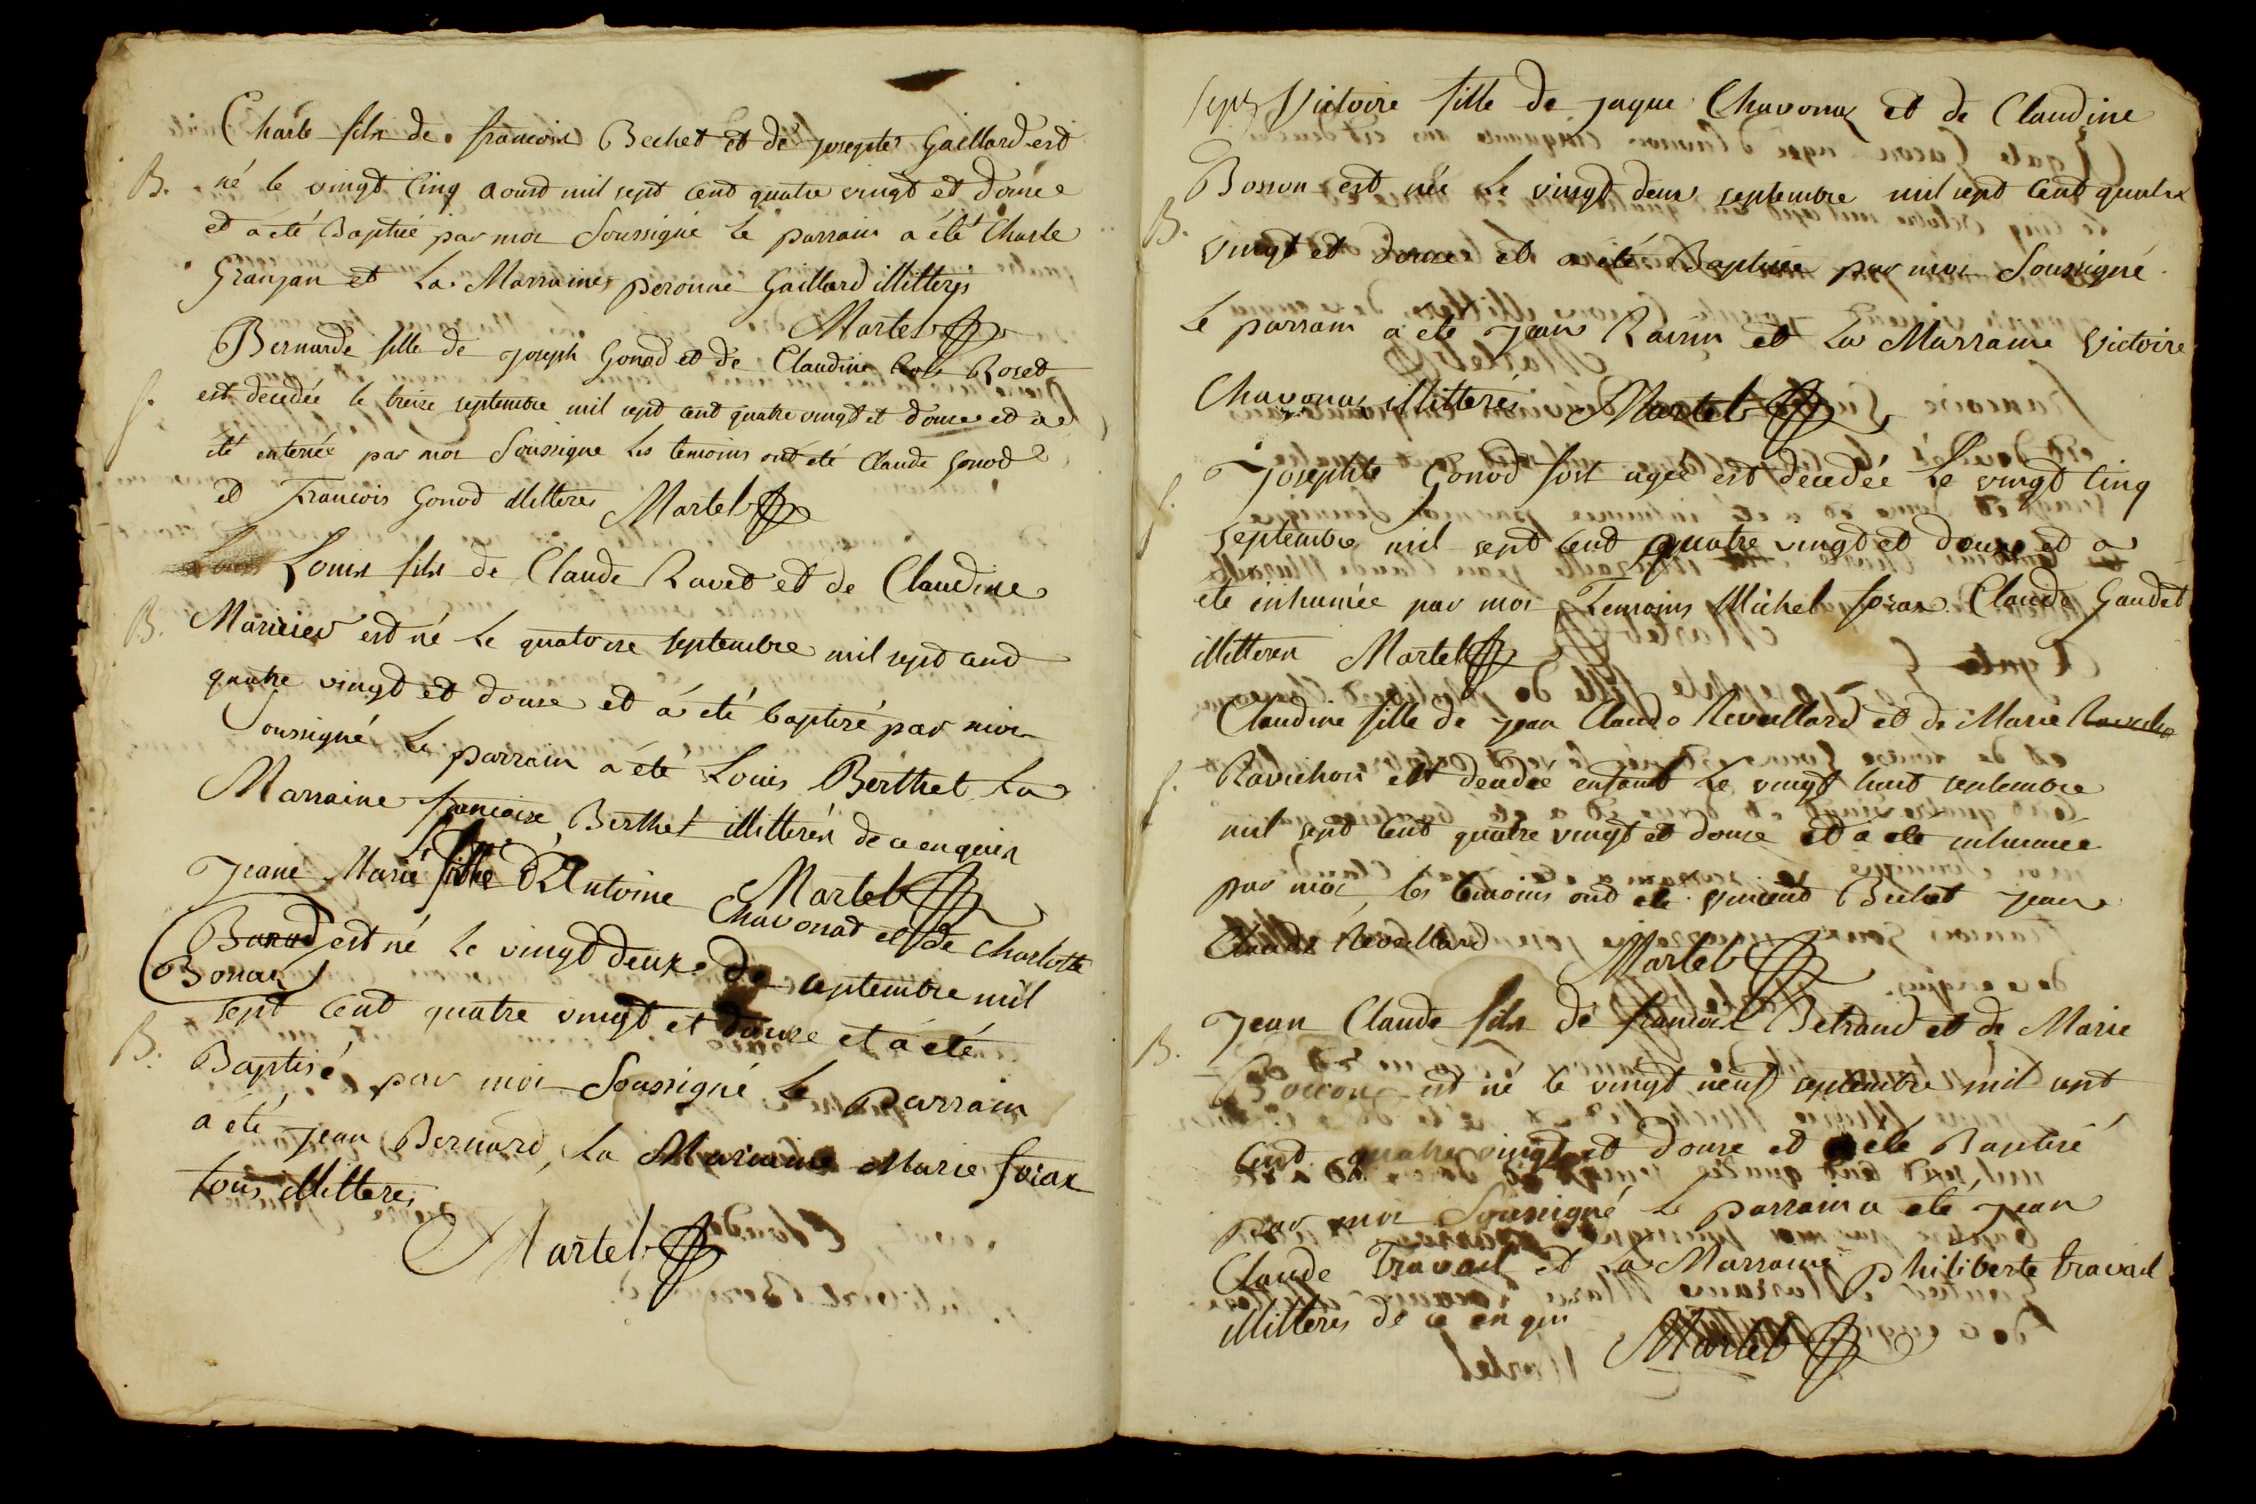 Charle fils de francois Bechet et de josephte Gaillard est
B. né le vingt cinq aoust mil sept cent quatre vingt et douze
et a été Baptisé par moi Soussigné le parrain a été Charle
Granjan et La Marraine peronne Gaillard illitterés
Martel
Bernarde fille de joseph Gonod et de Claudine Roset
S. est decedée le treize septembre mil sept cent quatre vingt et douze et a
été enterrée par moi Soussigne Les temoins ont été Claude Gonod
et Francois Gonod illitterés Martel
Louis fils de Claude Ravet et de Claudine
B. est né Le quatorze septembre mil sept cent
quatre vingt et douze et á été baptisé par moi
Soussigné Le parrain a été Louis Berthet La
Marraine francoise Berthet illitterés de ce enquis
Martel
Jeane Marie fille d'Antoine Chavonat et de Charlotte
Bonnar est né Le vingt deux de septembre mil
sept cent quatre vingt et douze et á été
B. Baptisé par moi Soussigné Le parrain
a été jean Bernard, La Marraine Marie forax
tous illitterés
Martel
Victoire fille de jaque Chavonaz et de Claudine
Bosson est née Le vingt deux septembre mil sept cent quatre
B. vingt et douze et a été Baptisée par moi Soussigné
Le parrain a été jean Ravin et La Marraine Victoire
Chavonaz illitterés Martel
S. josephte Gonod fort agée est decedée Le vingt cinq
septembre mil sept cent quatre vingt et douze et a
été inhumée par moi Temoins Michel forax Claude Gaudet
illitterés Martel
Claudine fille de jean Claude Reveillard et de Marie
S. Ravichon est decedée enfant Le vingt huit septembre
mil sept cent quatre vingt et douze et a été inhumée
par moi, les temoins ont été vincent Bechet jean
Claude Reveillard Martel
B. Jean Claude fils de francois Betrand et de Marie
est né le vingt neuf septembre mil sept
cent quatre vingt et douze et a été Baptisé
par moi Soussigné Le parrain a été jean
Claude Travail et La Marraine philiberte travail
illitterés de ce en qui
Martel